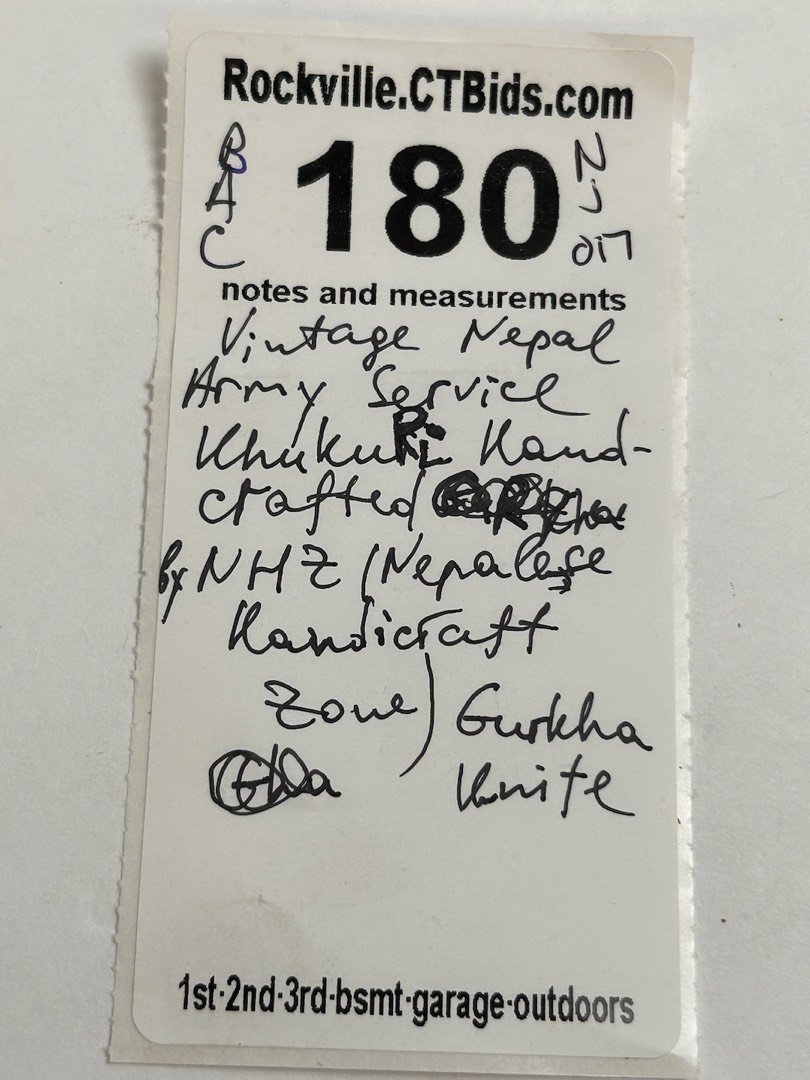 Rockville.CTBids.com
B
A
C
180
notes and measurements
Vintage Nepal
Army Service
KhukuRi Hand-
crafted
by NHZ (Nepalese
Handicraft
Zone) Gurkha
Knife
1st·2nd·3rd·bsmt·garage·outdoors